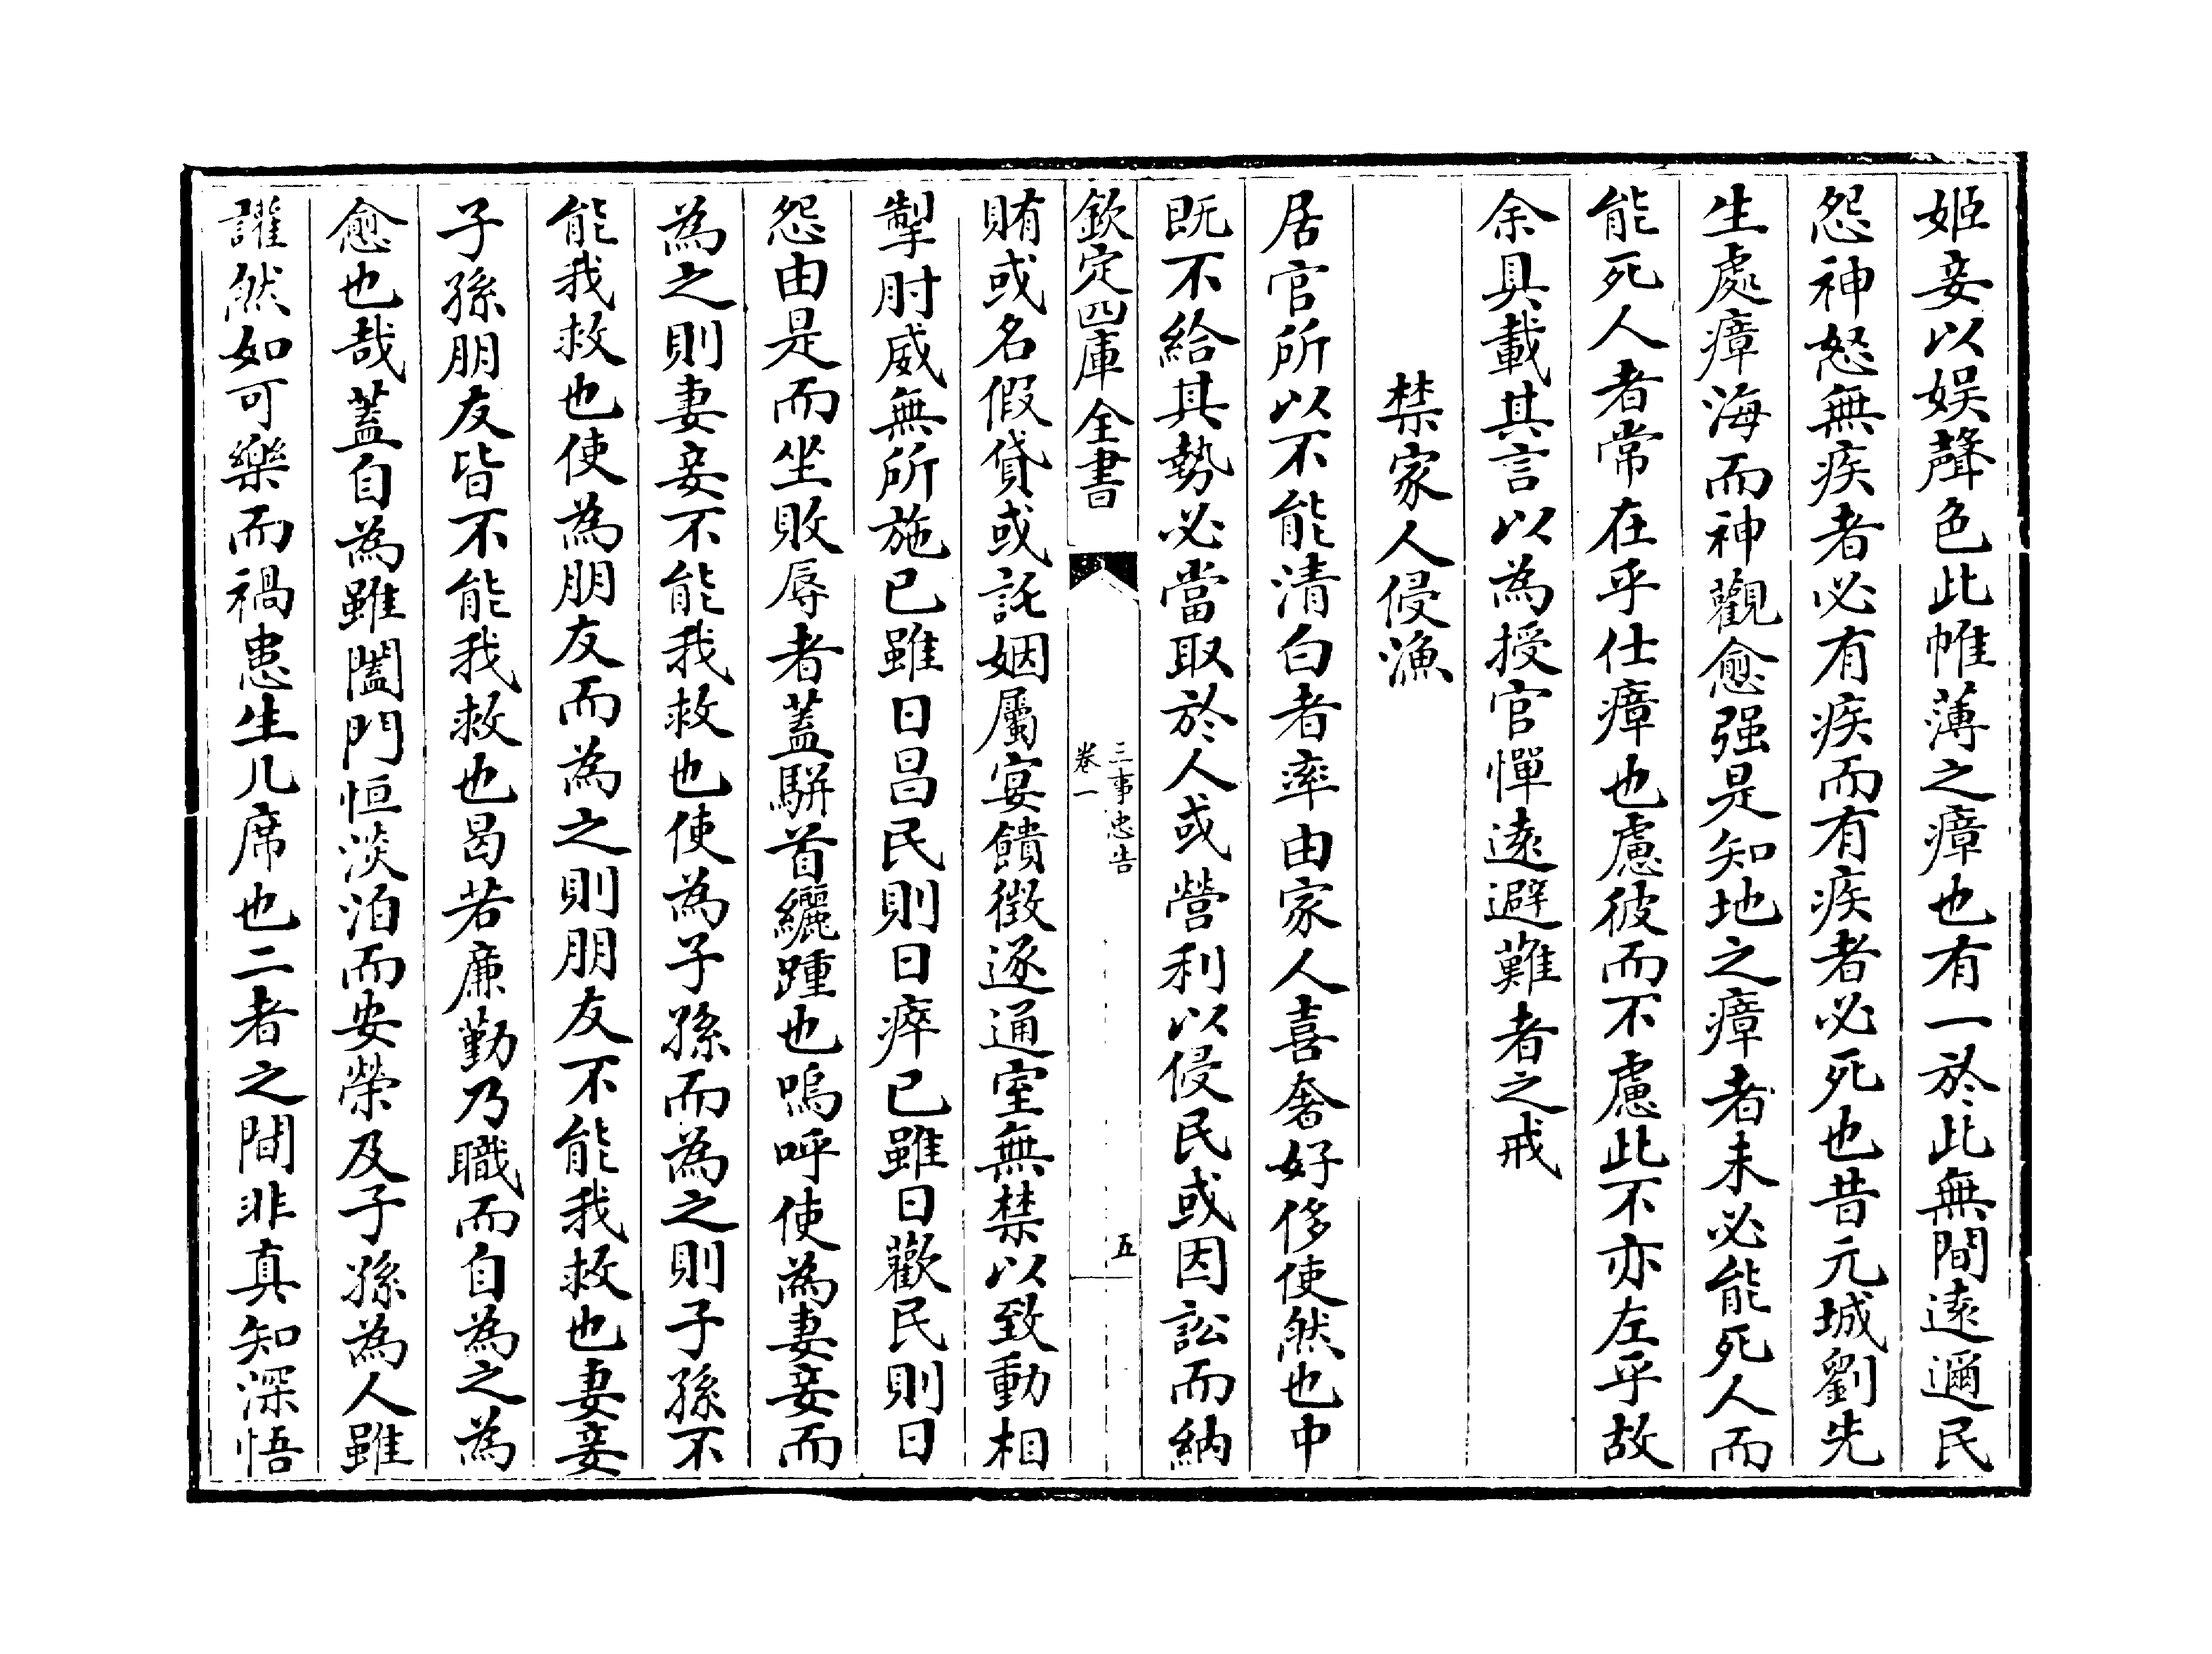 姬妾以娱聲色此帷薄之瘴也有一於此無間逺邇民
怨神怒無疾者必有疾而有疾者必死也昔元城劉先
生處瘴海而神觀愈强是知地之瘴者未必能死人而
能死人者常在乎仕瘴也慮彼而不慮此不亦左乎故
余具載其言以為授官憚逺避難者之戒
禁家人侵漁
居官所以不能清白者率由家人喜奢好侈使然也中
既不給其勢必當取於人或營利以侵民或因訟而納
欽定四庫全書
三事忠告
卷一
五
賄或名假貸或託姻屬宴饋徵逐通室無禁以致動相
掣肘威無所施已雖日昌民則日瘁已雖日歡民則日
怨由是而坐敗辱者蓋駢首纚踵也嗚呼使為妻妾而
為之則妻妾不能我救也使為子孫而為之則子孫不
能我救也使為朋友而為之則朋友不能我救也妻妾
子孫朋友皆不能我救也曷若廉勤乃職而自為之為
愈也哉蓋自為雖闔門恒淡泊而安榮及子孫為人雖
讙然如可樂而禍患生几席也二者之間非真知深悟